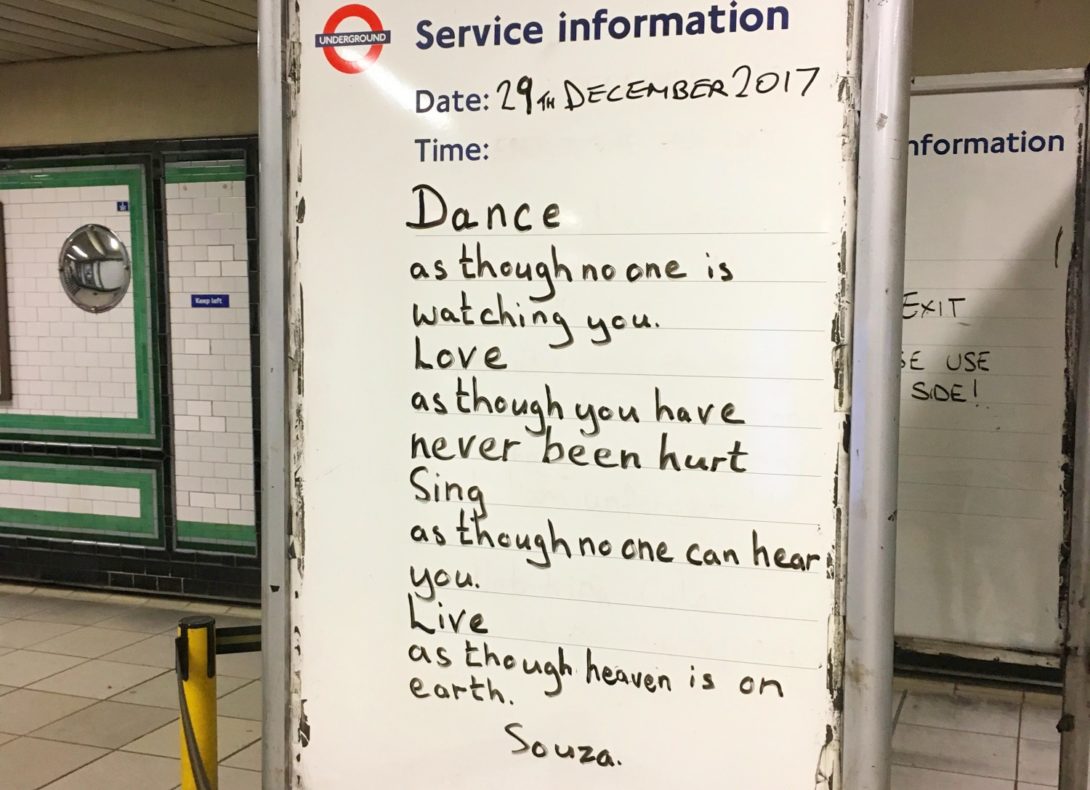 UNDERGROUND
Service information
Date: 29TH DECEMBER 2017
Time:
Dance
as though no one is
watching you.
Love
as though you have
never been hurt
Sing
as though no one can hear
you.
Live
as though heaven is on
earth.
Souza.
Keep left
nformation
EXIT
SE USE
SIDE!